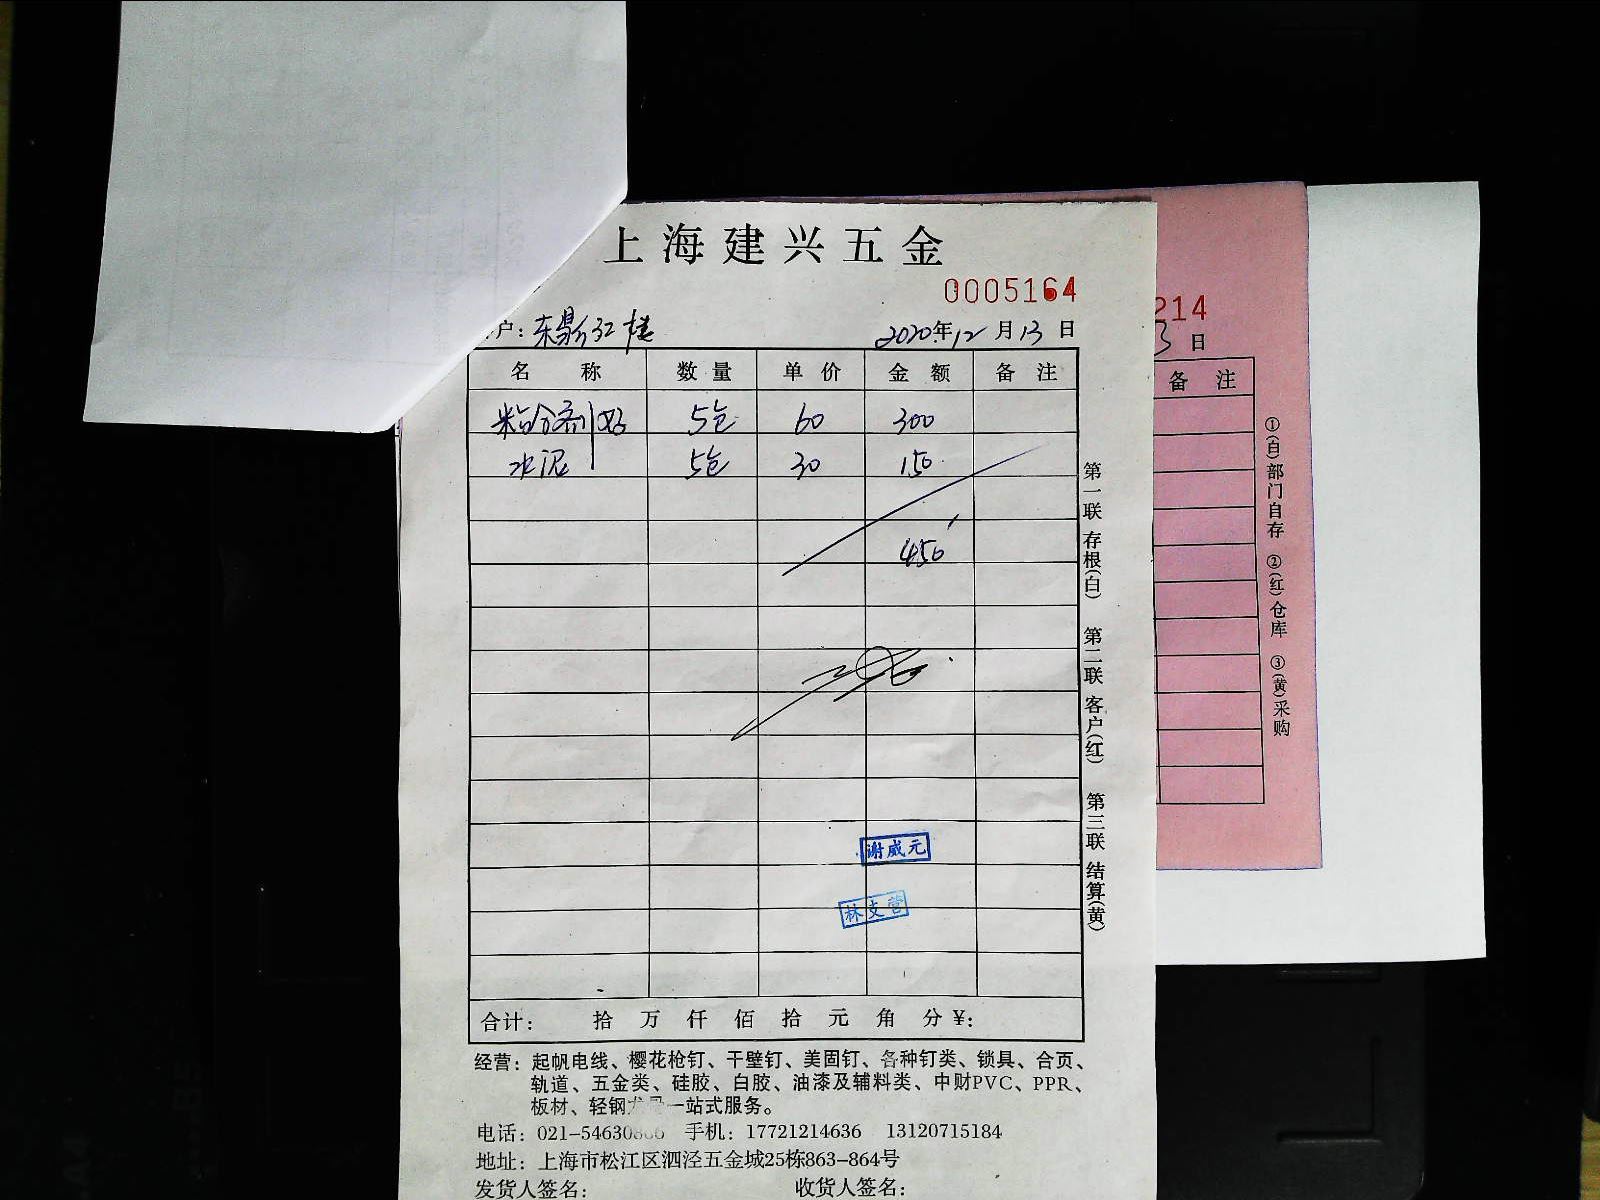 上海建兴五金
0005164
户：东鼎红楼 2020年12月13日
名称 数量 单价 金额 备注
粘合剂 5包 60 300
水泥 5包 30 150
450
谢威元
林支营
合计： 拾 万 仟 佰 拾 元 角 分 ¥：
经营：起帆电线、樱花枪钉、干壁钉、美固钉、各种钉类、锁具、合页、
轨道、五金类、硅胶、白胶、油漆及辅料类、中财PVC、PPR、
板材、轻钢龙骨一站式服务。
电话：021-54630 手机：17721214636 13120715184
地址：上海市松江区泗泾五金城25栋863-864号
发货人签名： 收货人签名：
第一联 存根(白) 第二联 客户(红) 第三联 结算(黄)
214
3日
备注
①(白)部门自存 ②(红)仓库 ③(黄)采购